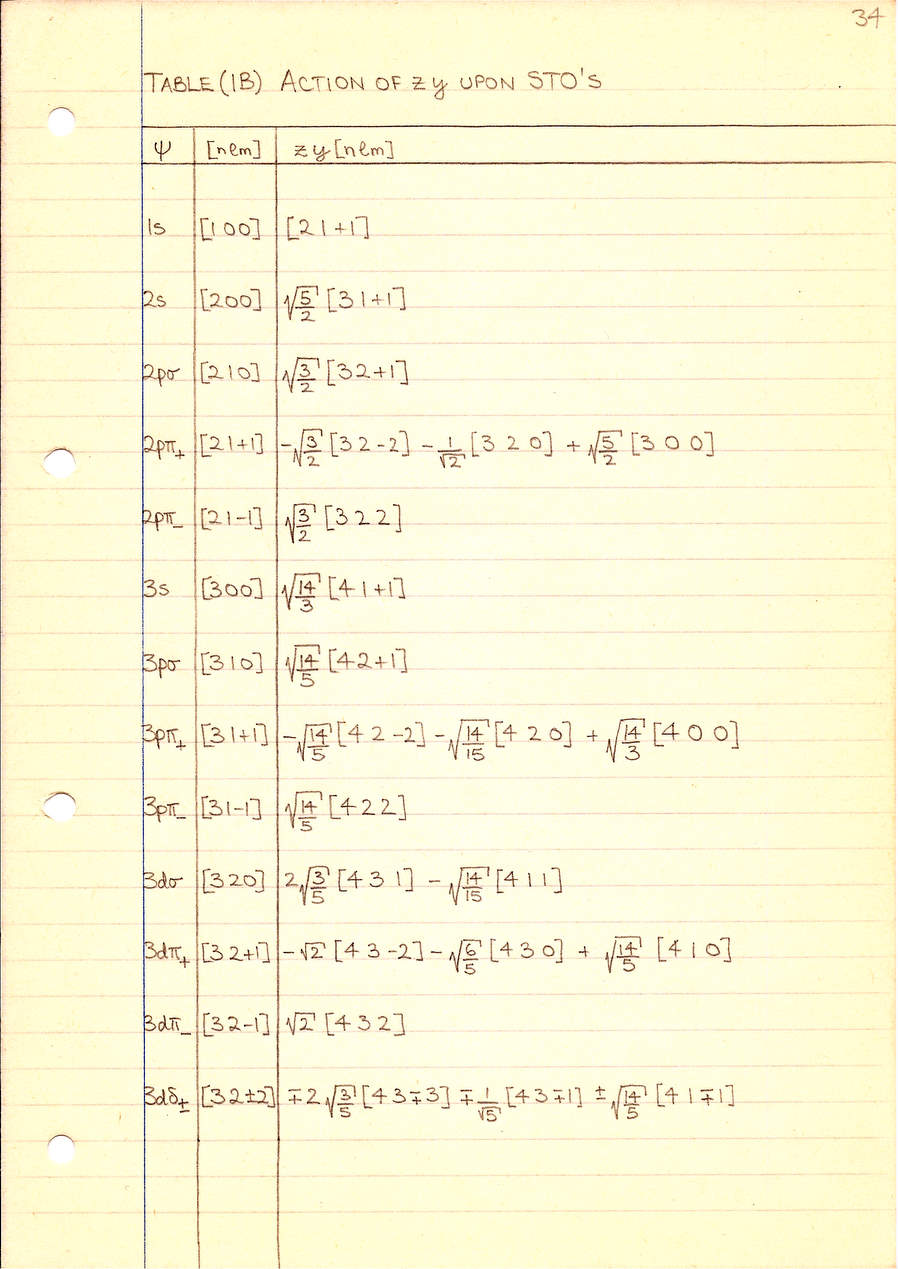 34
TABLE (1B) ACTION OF zy UPON STO'S
ψ [nlm] zy[nlm]
1s [100] [21+1]
2s [200] √(5/2) [31+1]
2pσ [210] √(3/2) [32+1]
2pπ₊ [21+1] -√(3/2) [32-2] - 1/√2 [320] + √(5/2) [300]
2pπ₋ [21-1] √(3/2) [322]
3s [300] √(14/3) [41+1]
3pσ [310] √(14/5) [42+1]
3pπ₊ [31+1] -√(14/5) [42-2] - √(14/15) [420] + √(14/3) [400]
3pπ₋ [31-1] √(14/5) [422]
3dσ [320] 2√(3/5) [431] - √(14/15) [411]
3dπ₊ [32+1] -√2 [43-2] - √(6/5) [430] + √(14/5) [410]
3dπ₋ [32-1] √2 [432]
3dδ± [32±2] ∓2√(3/5) [43∓3] ∓ 1/√5 [43∓1] ± √(14/5) [41∓1]